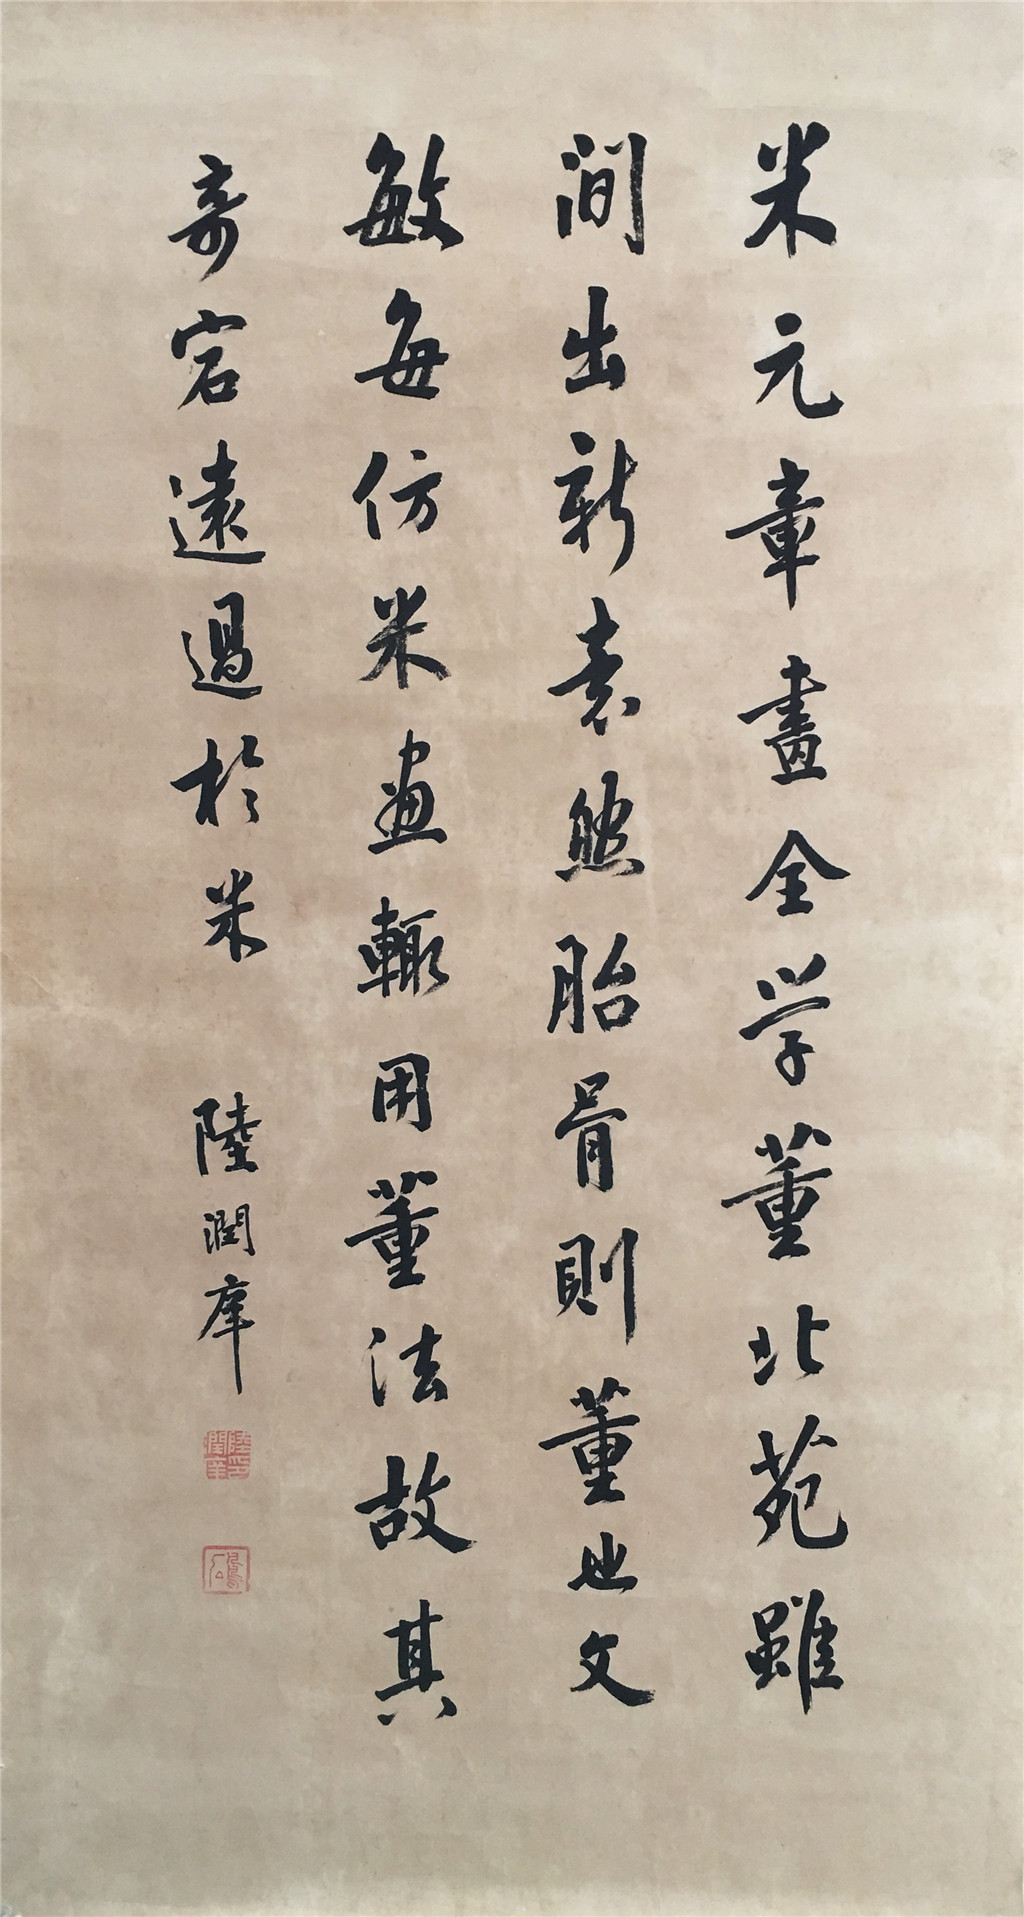 米元章畫全学董北苑雖
间出新意然胎骨則董也文
敏每仿米畫輙用董法故其
奇宕遠過於米
陸潤庠
陸潤庠印
鳳石